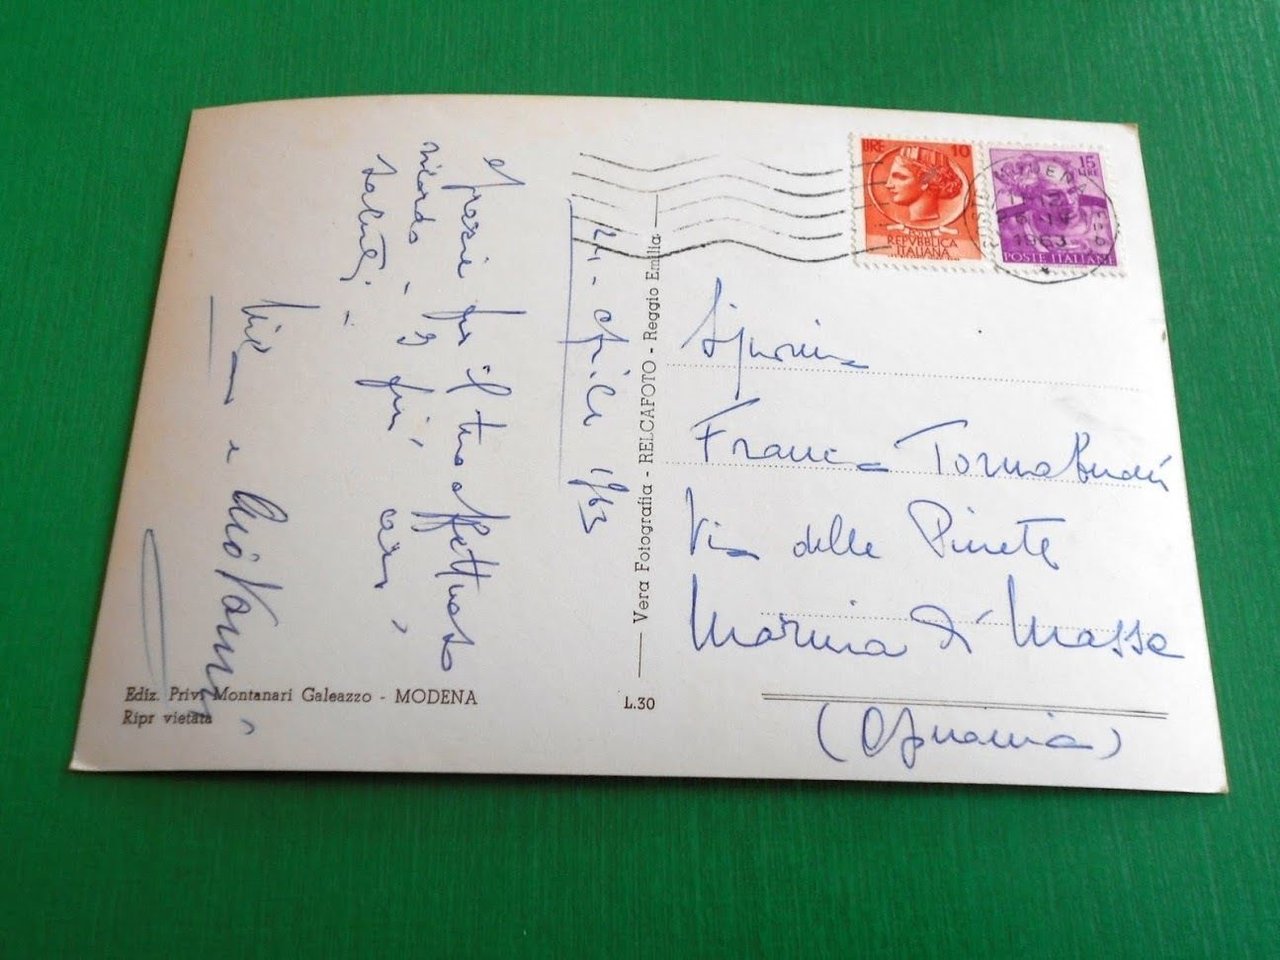 24 - Aprile 1963
Grazie per il tuo affettuoso
ricordo - I più cari
saluti -
e
Ediz. Priv. Montanari Galeazzo - MODENA
Ripr vietata
Vera Fotografia - RELCAFOTO - Reggio Emilia
L.30
LIRE 10
REPVBBLICA
ITALIANA
15
LIRE
POSTE ITALIANE
MODENA
1963
Signorina
Franca Tornabuoni
Via delle Pinete
Marina di Massa